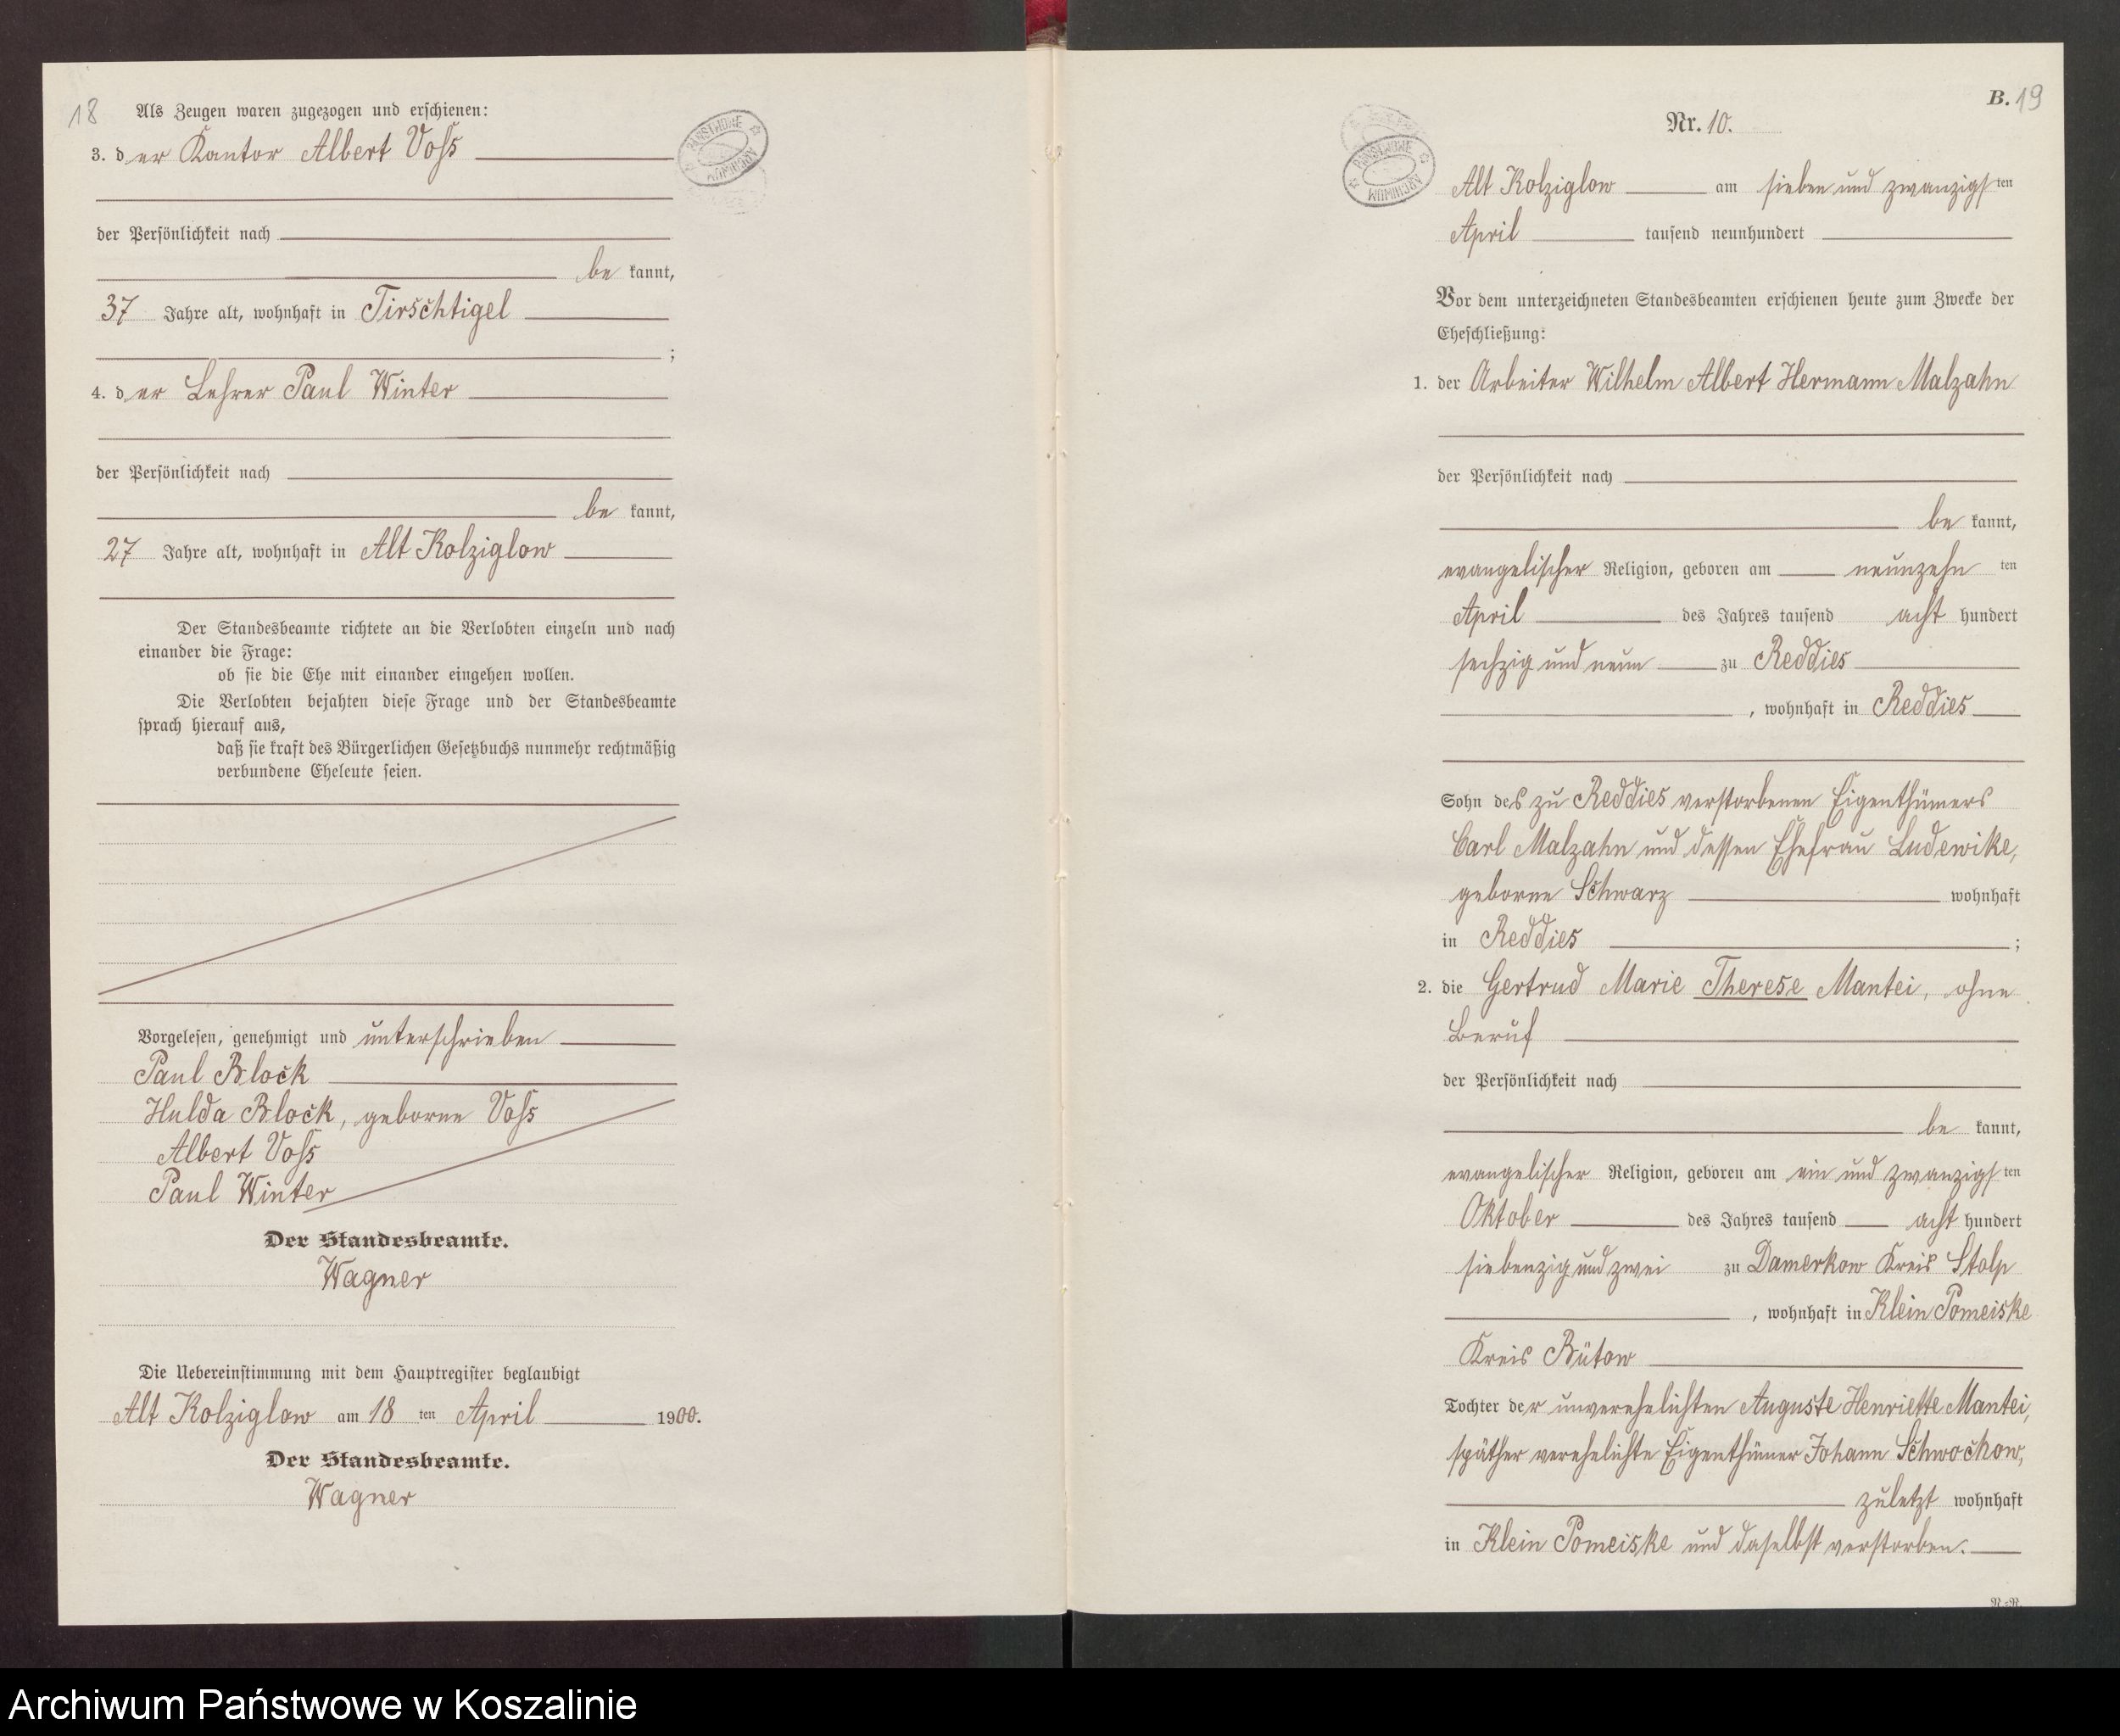 18
Als Zeugen waren zugezogen und erschienen:
3. der Kantor Albert Voß
der Persönlichkeit nach
be kannt,
37 Jahre alt, wohnhaft in Tirschtigel
;
4. der Lehrer Paul Winter
der Persönlichkeit nach
be kannt,
27 Jahre alt, wohnhaft in Alt Kolziglow
Der Standesbeamte richtete an die Verlobten einzeln und nach
einander die Frage:
ob sie die Ehe mit einander eingehen wollen.
Die Verlobten bejahten diese Frage und der Standesbeamte
sprach hierauf aus,
daß sie kraft des Bürgerlichen Gesetzbuchs nunmehr rechtmäßig
verbundene Eheleute seien.
Vorgelesen, genehmigt und unterschrieben
Paul Block
Hulda Block, geborne Voß
Albert Voß
Paul Winter
Der Standesbeamte.
Wagner
Die Uebereinstimmung mit dem Hauptregister beglaubigt
Alt Kolziglow am 18 ten April 1900.
Der Standesbeamte.
Wagner
PAŃSTWOWE
ARCHIWUM
B. 19
Nr. 10.
PAŃSTWOWE
ARCHIWUM
Alt Kolziglow am sieben und zwanzigsten
April tausend neunhundert
Vor dem unterzeichneten Standesbeamten erschienen heute zum Zwecke der
Eheschließung:
1. der Arbeiter Wilhelm Albert Hermann Malzahn
der Persönlichkeit nach
be kannt,
evangelischer Religion, geboren am neunzehn ten
April des Jahres tausend acht hundert
sechzig und neun zu Reddies
, wohnhaft in Reddies
Sohn des zu Reddies verstorbenen Eigenthümers
Carl Malzahn und dessen Ehefrau Ludewike,
geborne Schwarz wohnhaft
in Reddies ;
2. die Gertrud Marie Therese Mantei, ohne
Beruf
der Persönlichkeit nach
be kannt,
evangelischer Religion, geboren am ein und zwanzigsten
Oktober des Jahres tausend acht hundert
siebenzig und zwei zu Damerkow Kreis Stolp
, wohnhaft in Klein Pomeiske
Kreis Bütow
Tochter der unverehelichten Auguste Henriette Mantei,
späther verehelichte Eigenthümer Johann Schwochow,
zuletzt wohnhaft
in Klein Pomeiske und daselbst verstorben.
N.-N.
Archiwum Państwowe w Koszalinie